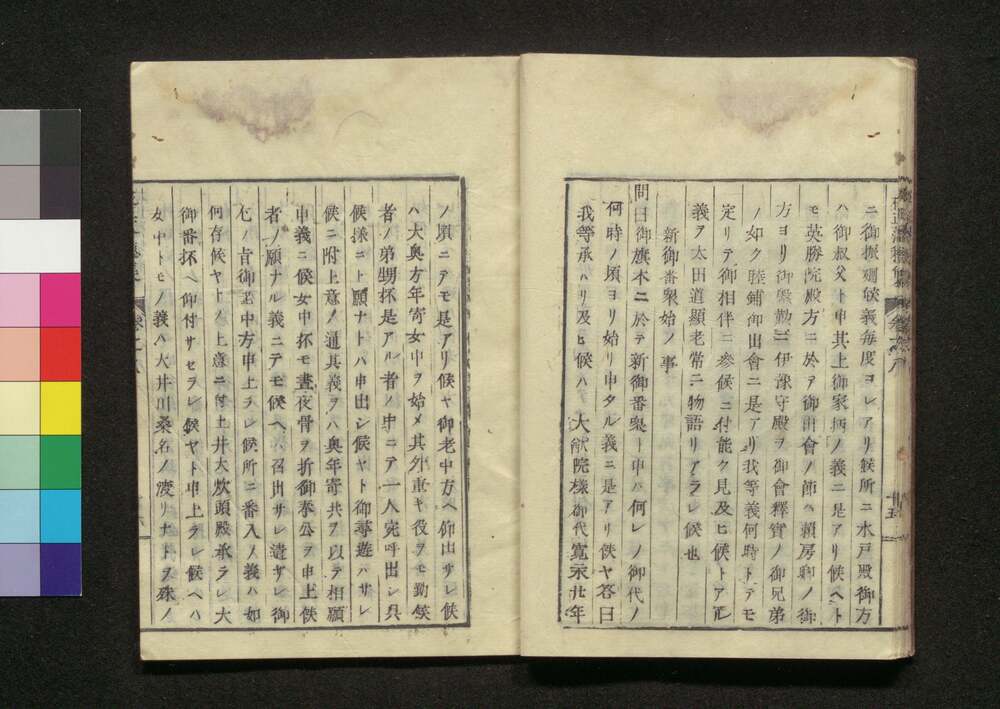 ニ御振廻候義毎度コレアリ候所ニ水戸殿御方
ハ御叔父ト申其上御家柄ノ義ニ是アリ候ヘト
モ英勝院殿方ニ於テ御出會ノ節ハ頼房卿ノ御
方ヨリ御慇勤ニ伊豫守殿ヲ御會釋實ノ御兄弟
ノ如ク睦鋪御出會ニ是アリ我等義何時トテモ
定リテ御相伴ニ参候ニ付能ク見及ヒ候トアル
義ヲ太田道顯老常ニ物語リアラレ候也
新御番衆始ノ事
問曰御旗本ニ於テ新御番衆ト申ハ何レノ御代ノ
何時ノ頃ヨリ始リ申タル義ニ是アリ候ヤ答曰
我等承ハリ及ヒ候ハ 大猷院様御代寛永廿年
ノ頃ニテモ是アリ候ヤ御老中方ヘ仰出サレ候
ハ大奥方年寄女中ヲ始メ其外重キ役ヲモ勤候
者ノ弟甥抔是アル者ノ中ニテ一人宛呼出シ呉
候様ニト願ナトハ申出シ候ヤト御尋遊ハサレ
候ニ附上意ノ通其義ヲハ奥年寄共ヲ以テ相願
申義ニ候女中抔モ晝夜骨ヲ折御奉公ヲ申上候
者ノ願ナル義ニテモ候ヘハ召出サレ遣サレ御
尤ノ旨御老中方申上ラレ候所ニ番入ノ義ハ如
何存候ヤトノ上意ニ付土井大炊頭殿承ラレ大
御番抔ヘ仰付サセラレ候ヤト申上ラレ候ヘハ
女中トモノ義ハ大井川桑名ノ渡リナトヲ殊ノ